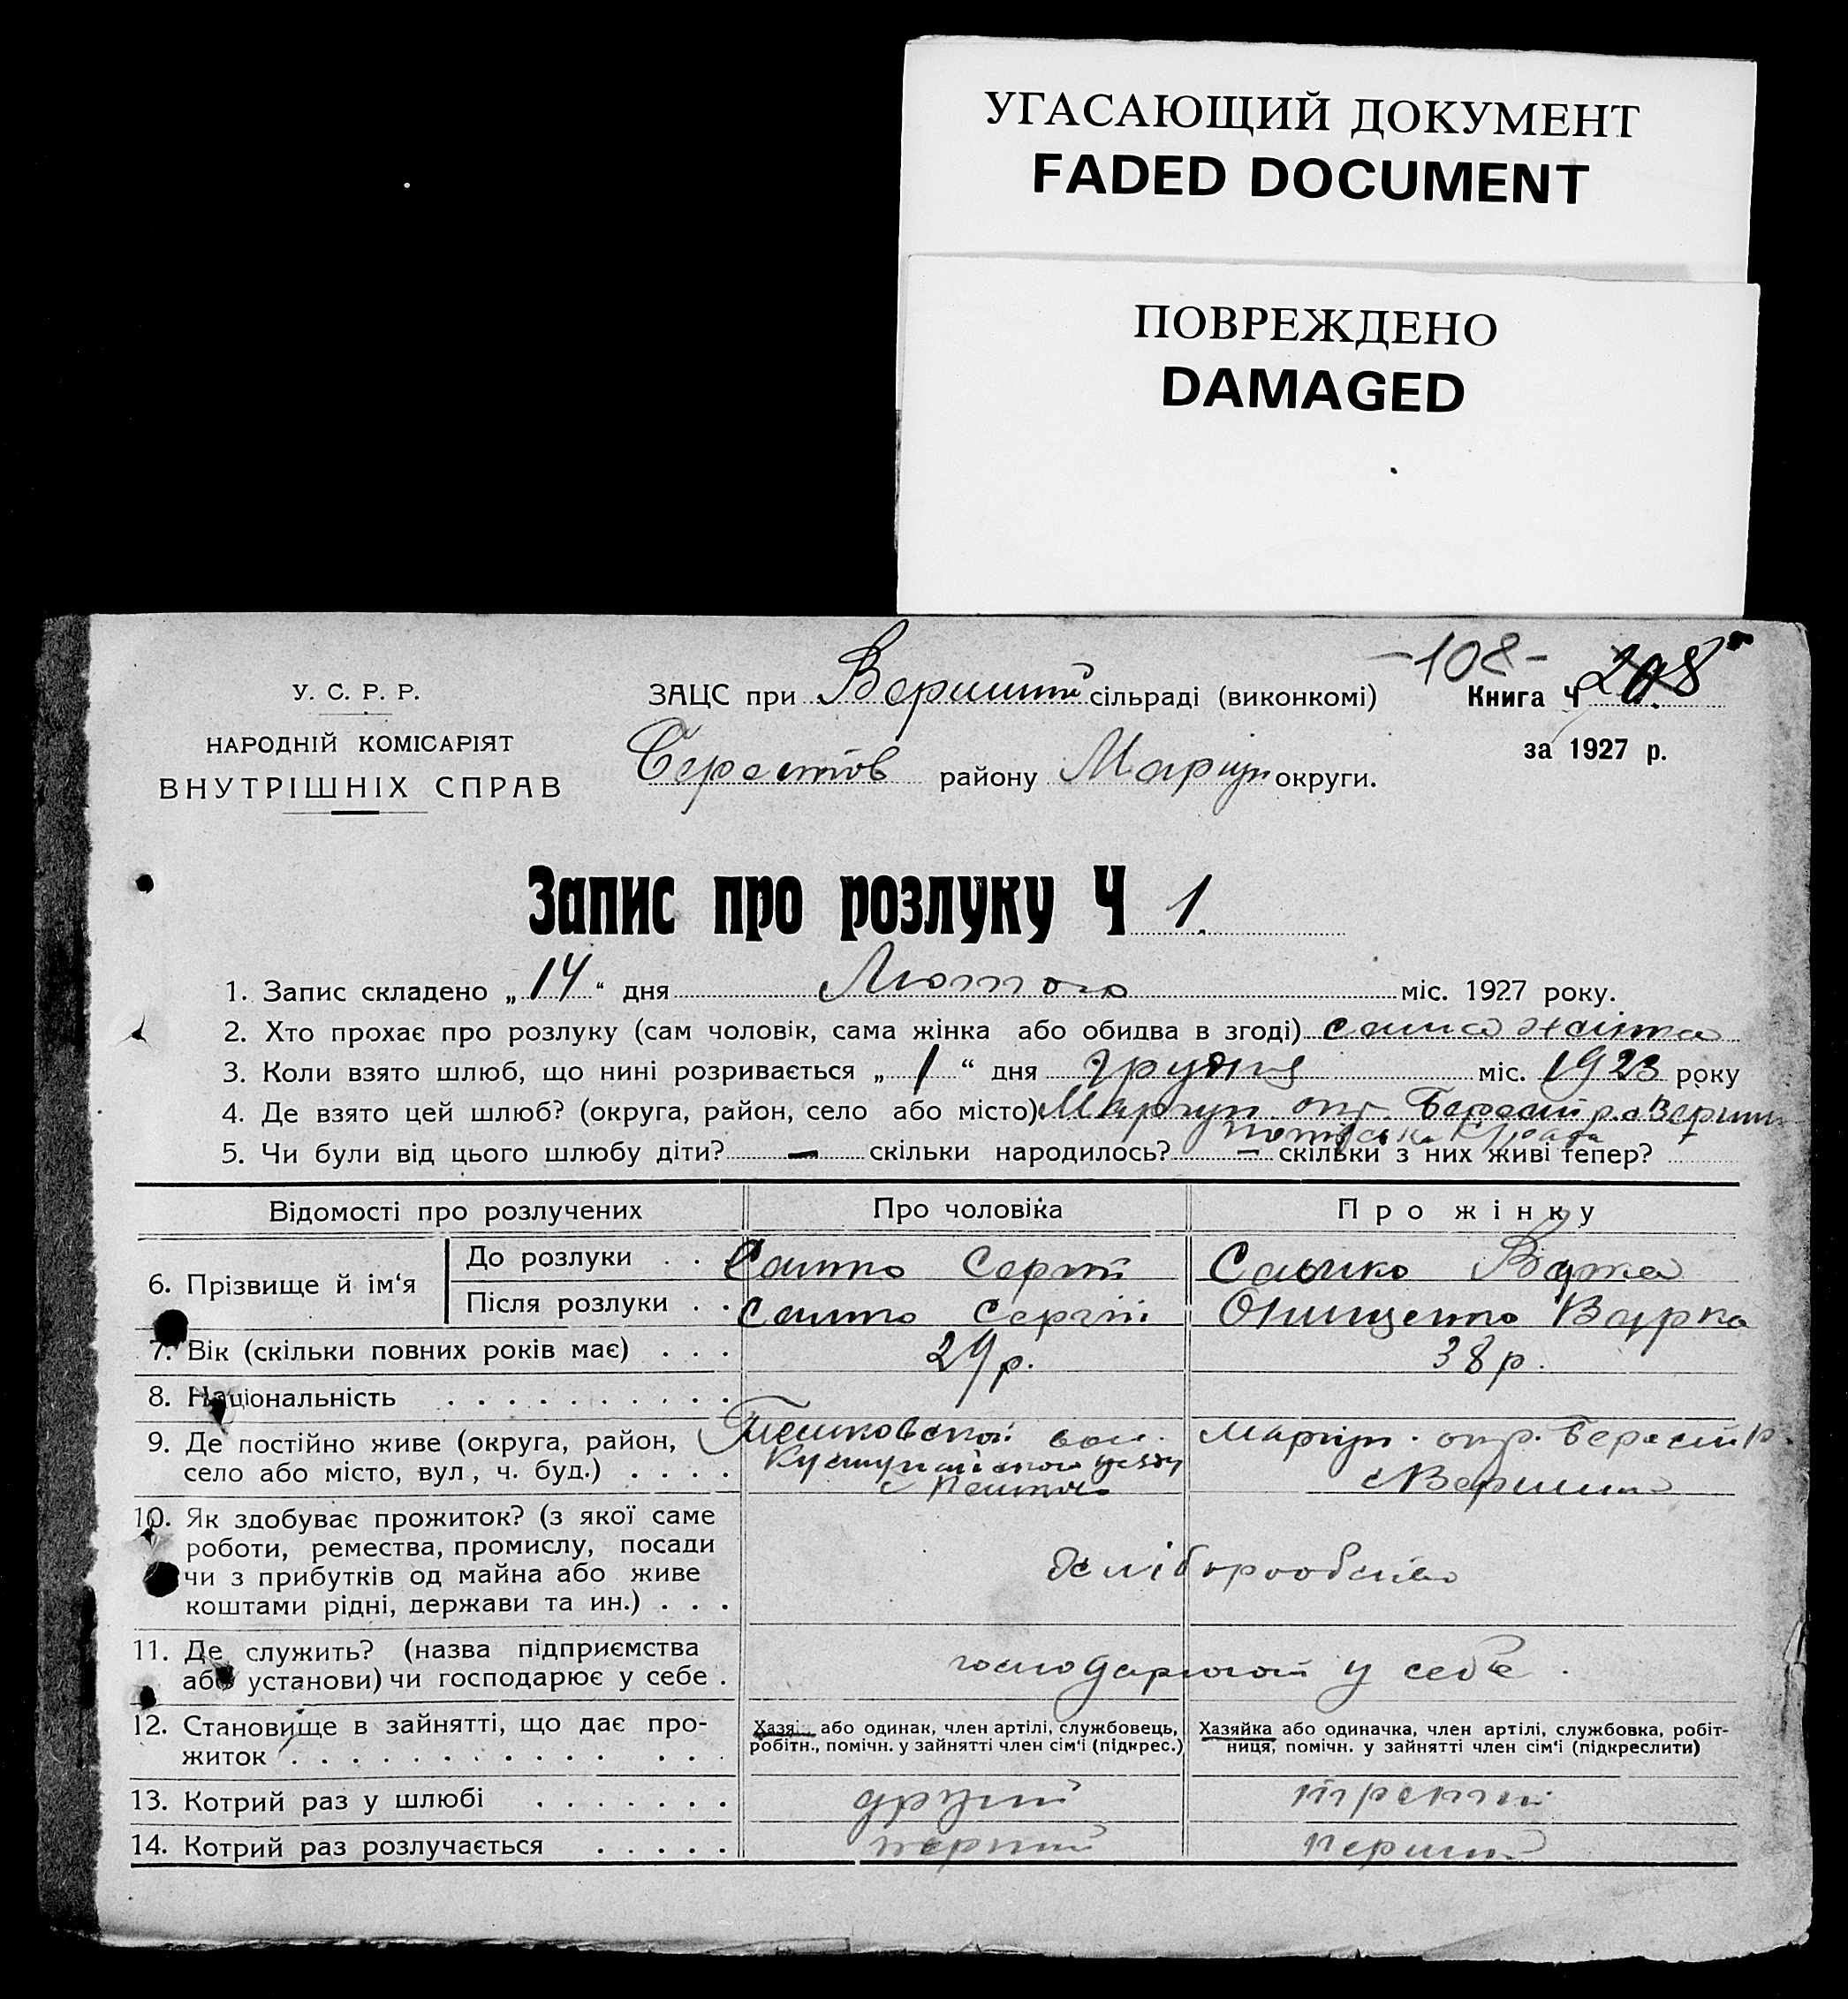 УГАСАЮЩИЙ ДОКУМЕНТ
FADED DOCUMENT
ПОВРЕЖДЕНО
DAMAGED
-108-
У. С. Р. Р.
НАРОДНІЙ КОМІСАРІЯТ
ВНУТРІШНІХ СПРАВ
ЗАЦС при сільраді (виконкомі)
Берестов району Маріуп округи.
Книга Ч 208
за 1927 р.
Запис про розлуку Ч 1.
1. Запис складено „ 14 “ дня Лютого міс. 1927 року.
2. Хто прохає про розлуку (сам чоловік, сама жінка або обидва в згоді) сама жінка
3. Коли взято шлюб, що нині розривається „ 1 “ дня грудня міс. 1923 року
4. Де взято цей шлюб? (округа, район, село або місто) Маріуп окр
5. Чи були від цього шлюбу діти? — скільки народилось? — скільки з них живі тепер?
Відомості про розлучених Про чоловіка Про жінку
6. Прізвище й ім‘я
До розлуки . . Сергій
Після розлуки . . Сергій Онищенко Варка
7. Вік (скільки повних років має) . . . 29 р. 38 р.
8. Національність . . . . . . . . . .
9. Де постійно живе (округа, район, Маріуп. окр. Берест р.
село або місто, вул., ч. буд.) . . . .
10. Як здобуває прожиток? (з якої саме
роботи, ремества, промислу, посади
чи з прибутків од майна або живе
коштами рідні, держави та ин.) . . .
11. Де служить? (назва підприємства
або установи) чи господарює у себе . господарюют у себе .
12. Становище в зайнятті, що дає про-
житок . . . . . . . . . . . . .
Хазяї або одинак, член артілі, службовець,
робітн., помічн. у зайнятті член сім‘ї (підкрес.)
Хазяйка або одиначка, член артілі, службовка, робіт-
ниця, помічн. у зайнятті член сім‘ї (підкреслити)
13. Котрий раз у шлюбі . . . . . . . другий третій
14. Котрий раз розлучається . . . . . перший перший